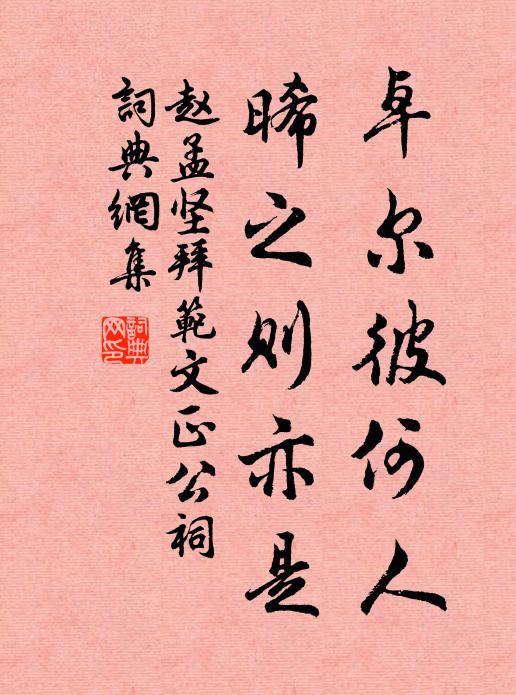 卓尔彼何人
晞之则亦是
赵孟坚拜範文正公祠
詞典網集
詞典
网印